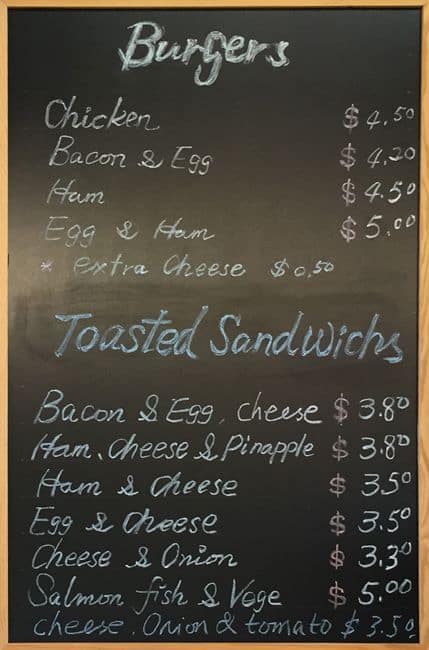 Burgers
Chicken $ 4.50
Bacon & Egg $ 4.20
Ham $ 4.50
Egg & Ham $ 5.00
* extra Cheese $0.50
Toasted Sandwichs
Bacon & Egg, cheese $ 3.80
Ham, Cheese & Pinapple $ 3.80
Ham & Cheese $ 3.50
Egg & Cheese $ 3.50
Cheese & Onion $ 3.30
Salmon fish & Vege $ 5.00
cheese, Onion & tomato $ 3.50